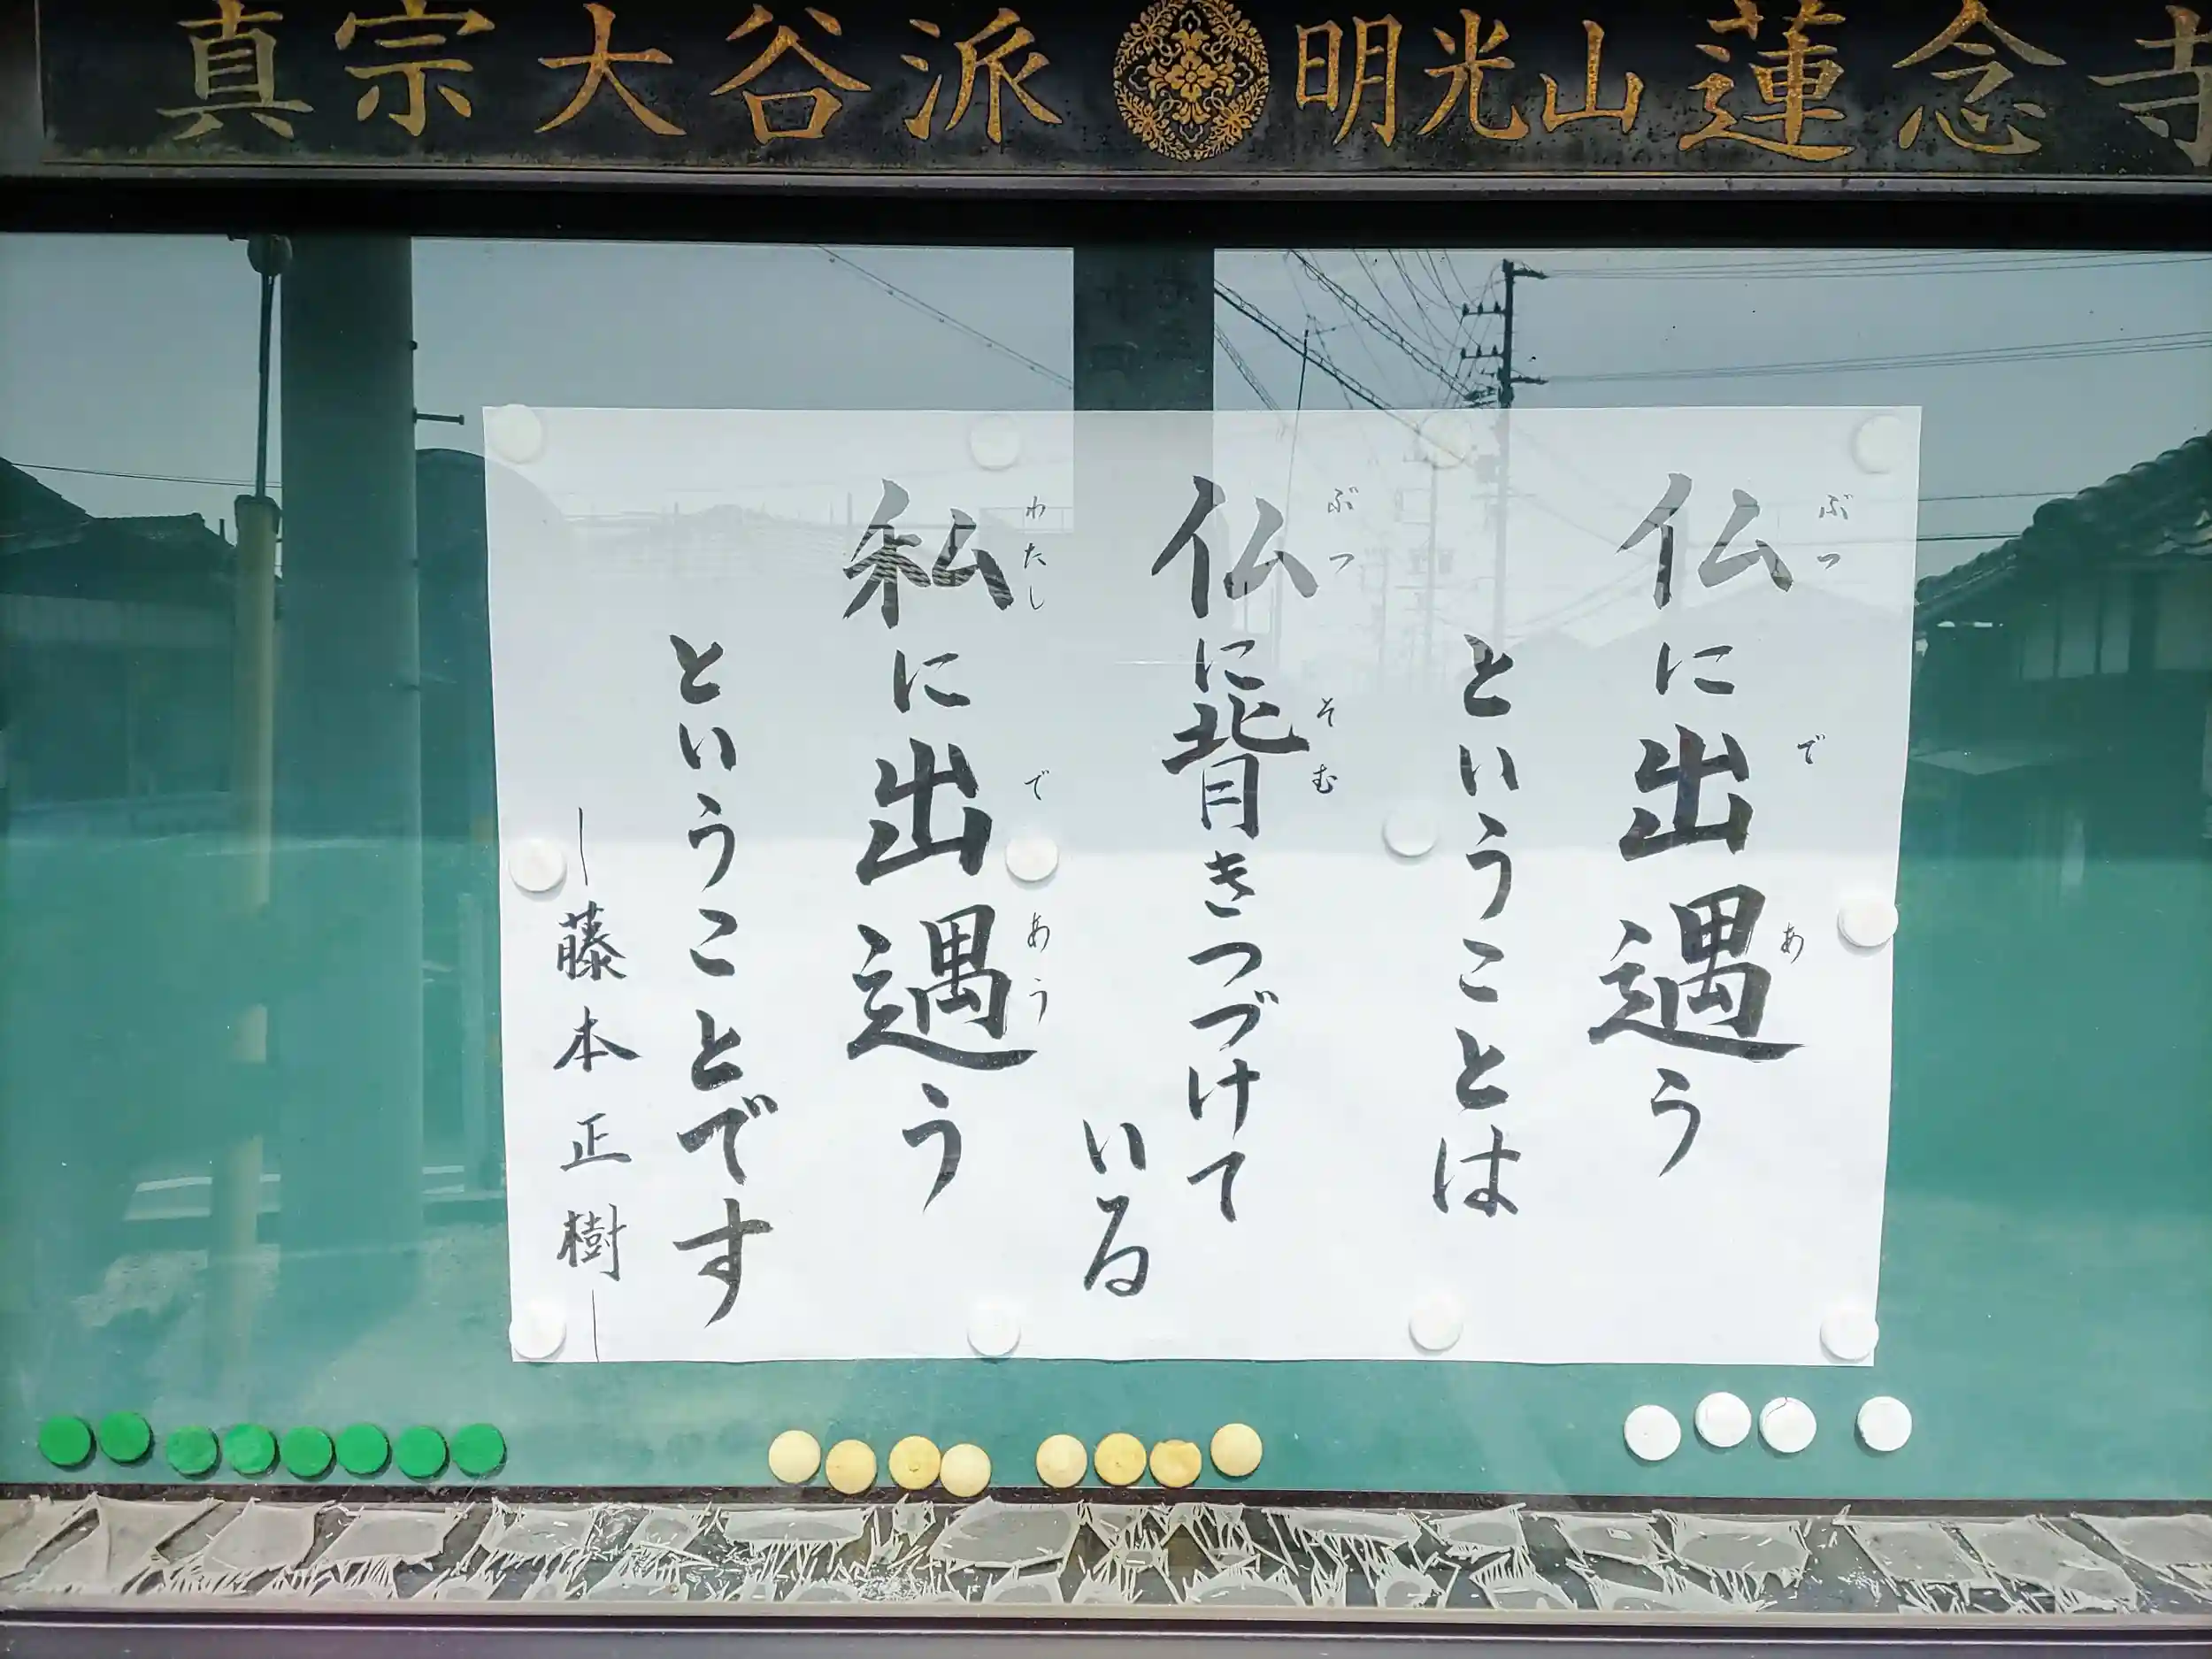 真宗大谷派 明光山 蓮念寺
仏に出遇う
ぶつ で あ
ということは
仏に背きつづけて
ぶつ そむ
いる
私に出遇う
わたし で あう
ということです
―藤本正樹―